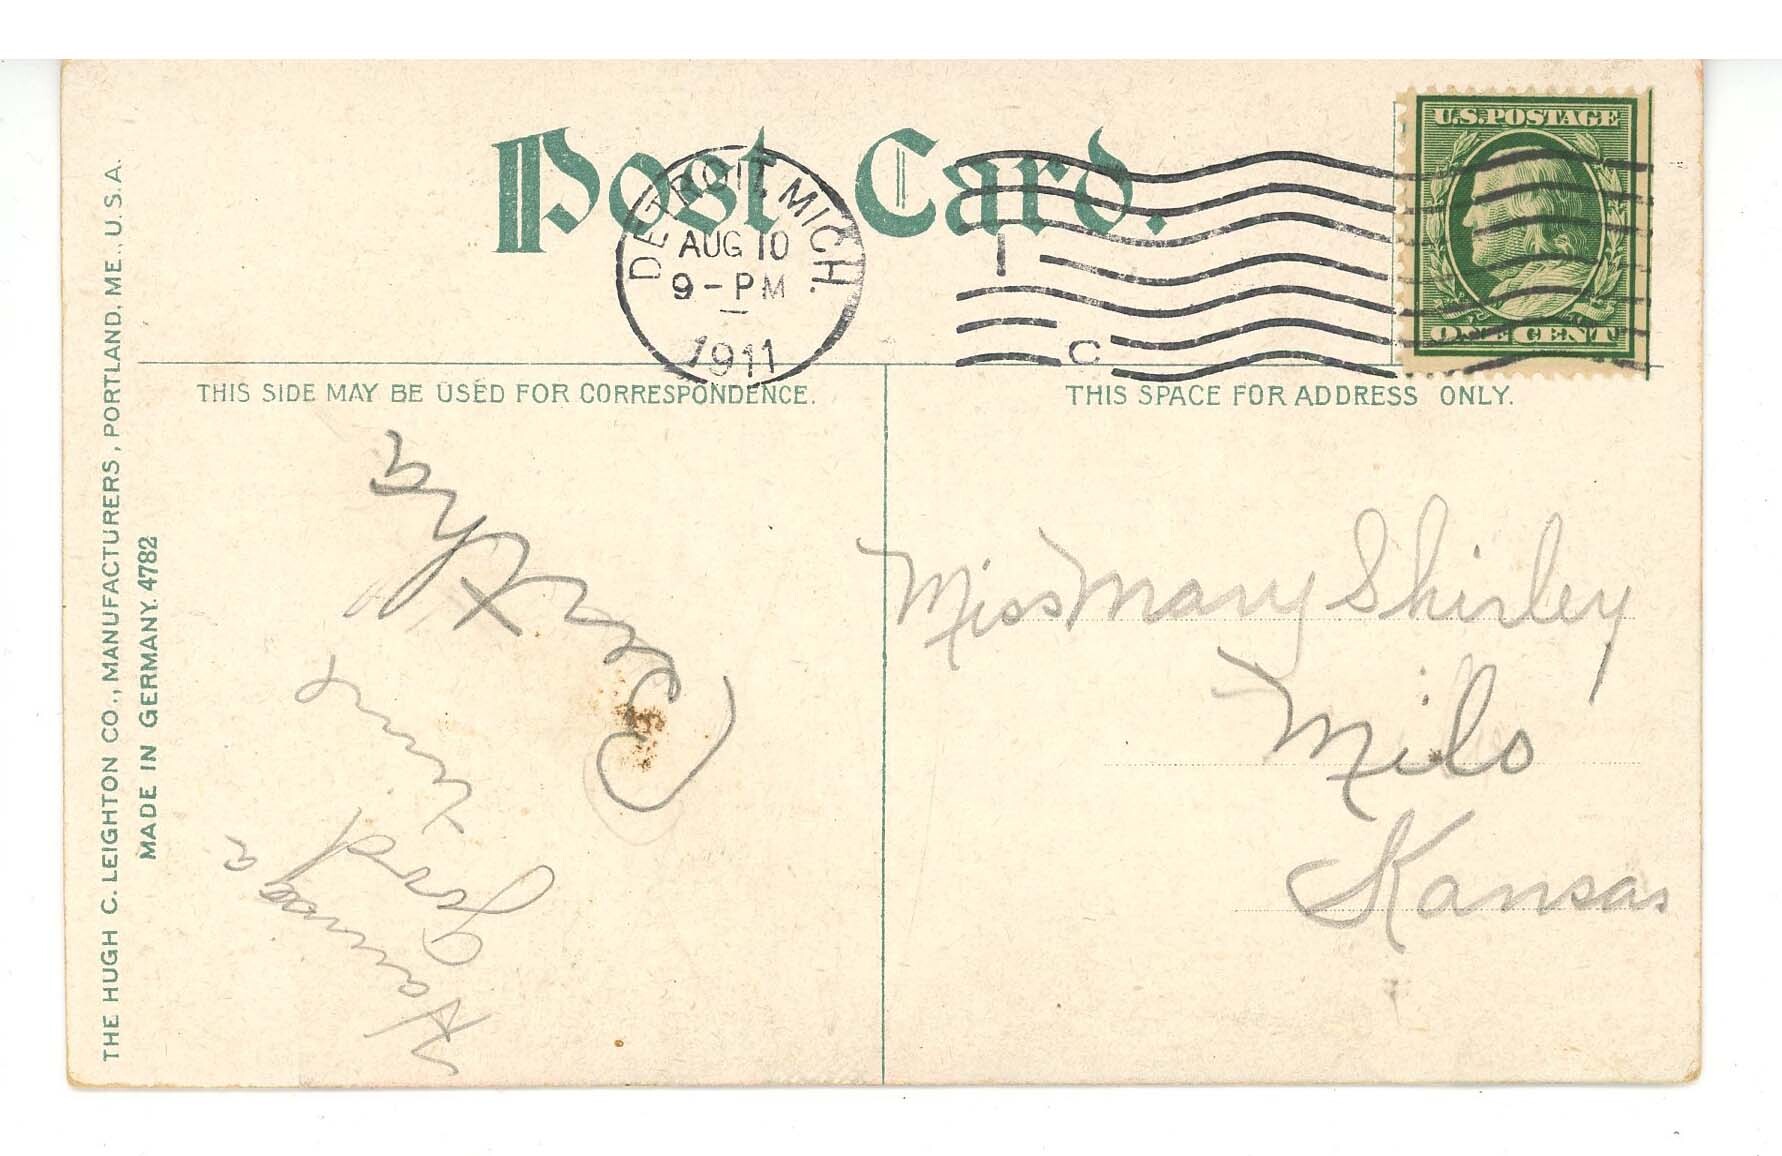 Post Card.
DETROIT, MICH.
AUG 10
9-PM
1911
1
C
U.S. POSTAGE
ONE CENT
THIS SIDE MAY BE USED FOR CORRESPONDENCE.
THIS SPACE FOR ADDRESS ONLY.
THE HUGH C. LEIGHTON CO., MANUFACTURERS, PORTLAND. ME., U.S.A.
MADE IN GERMANY. 4782
Having a
good time
Bertha
Miss Mary Shirley
Milo
Kansas